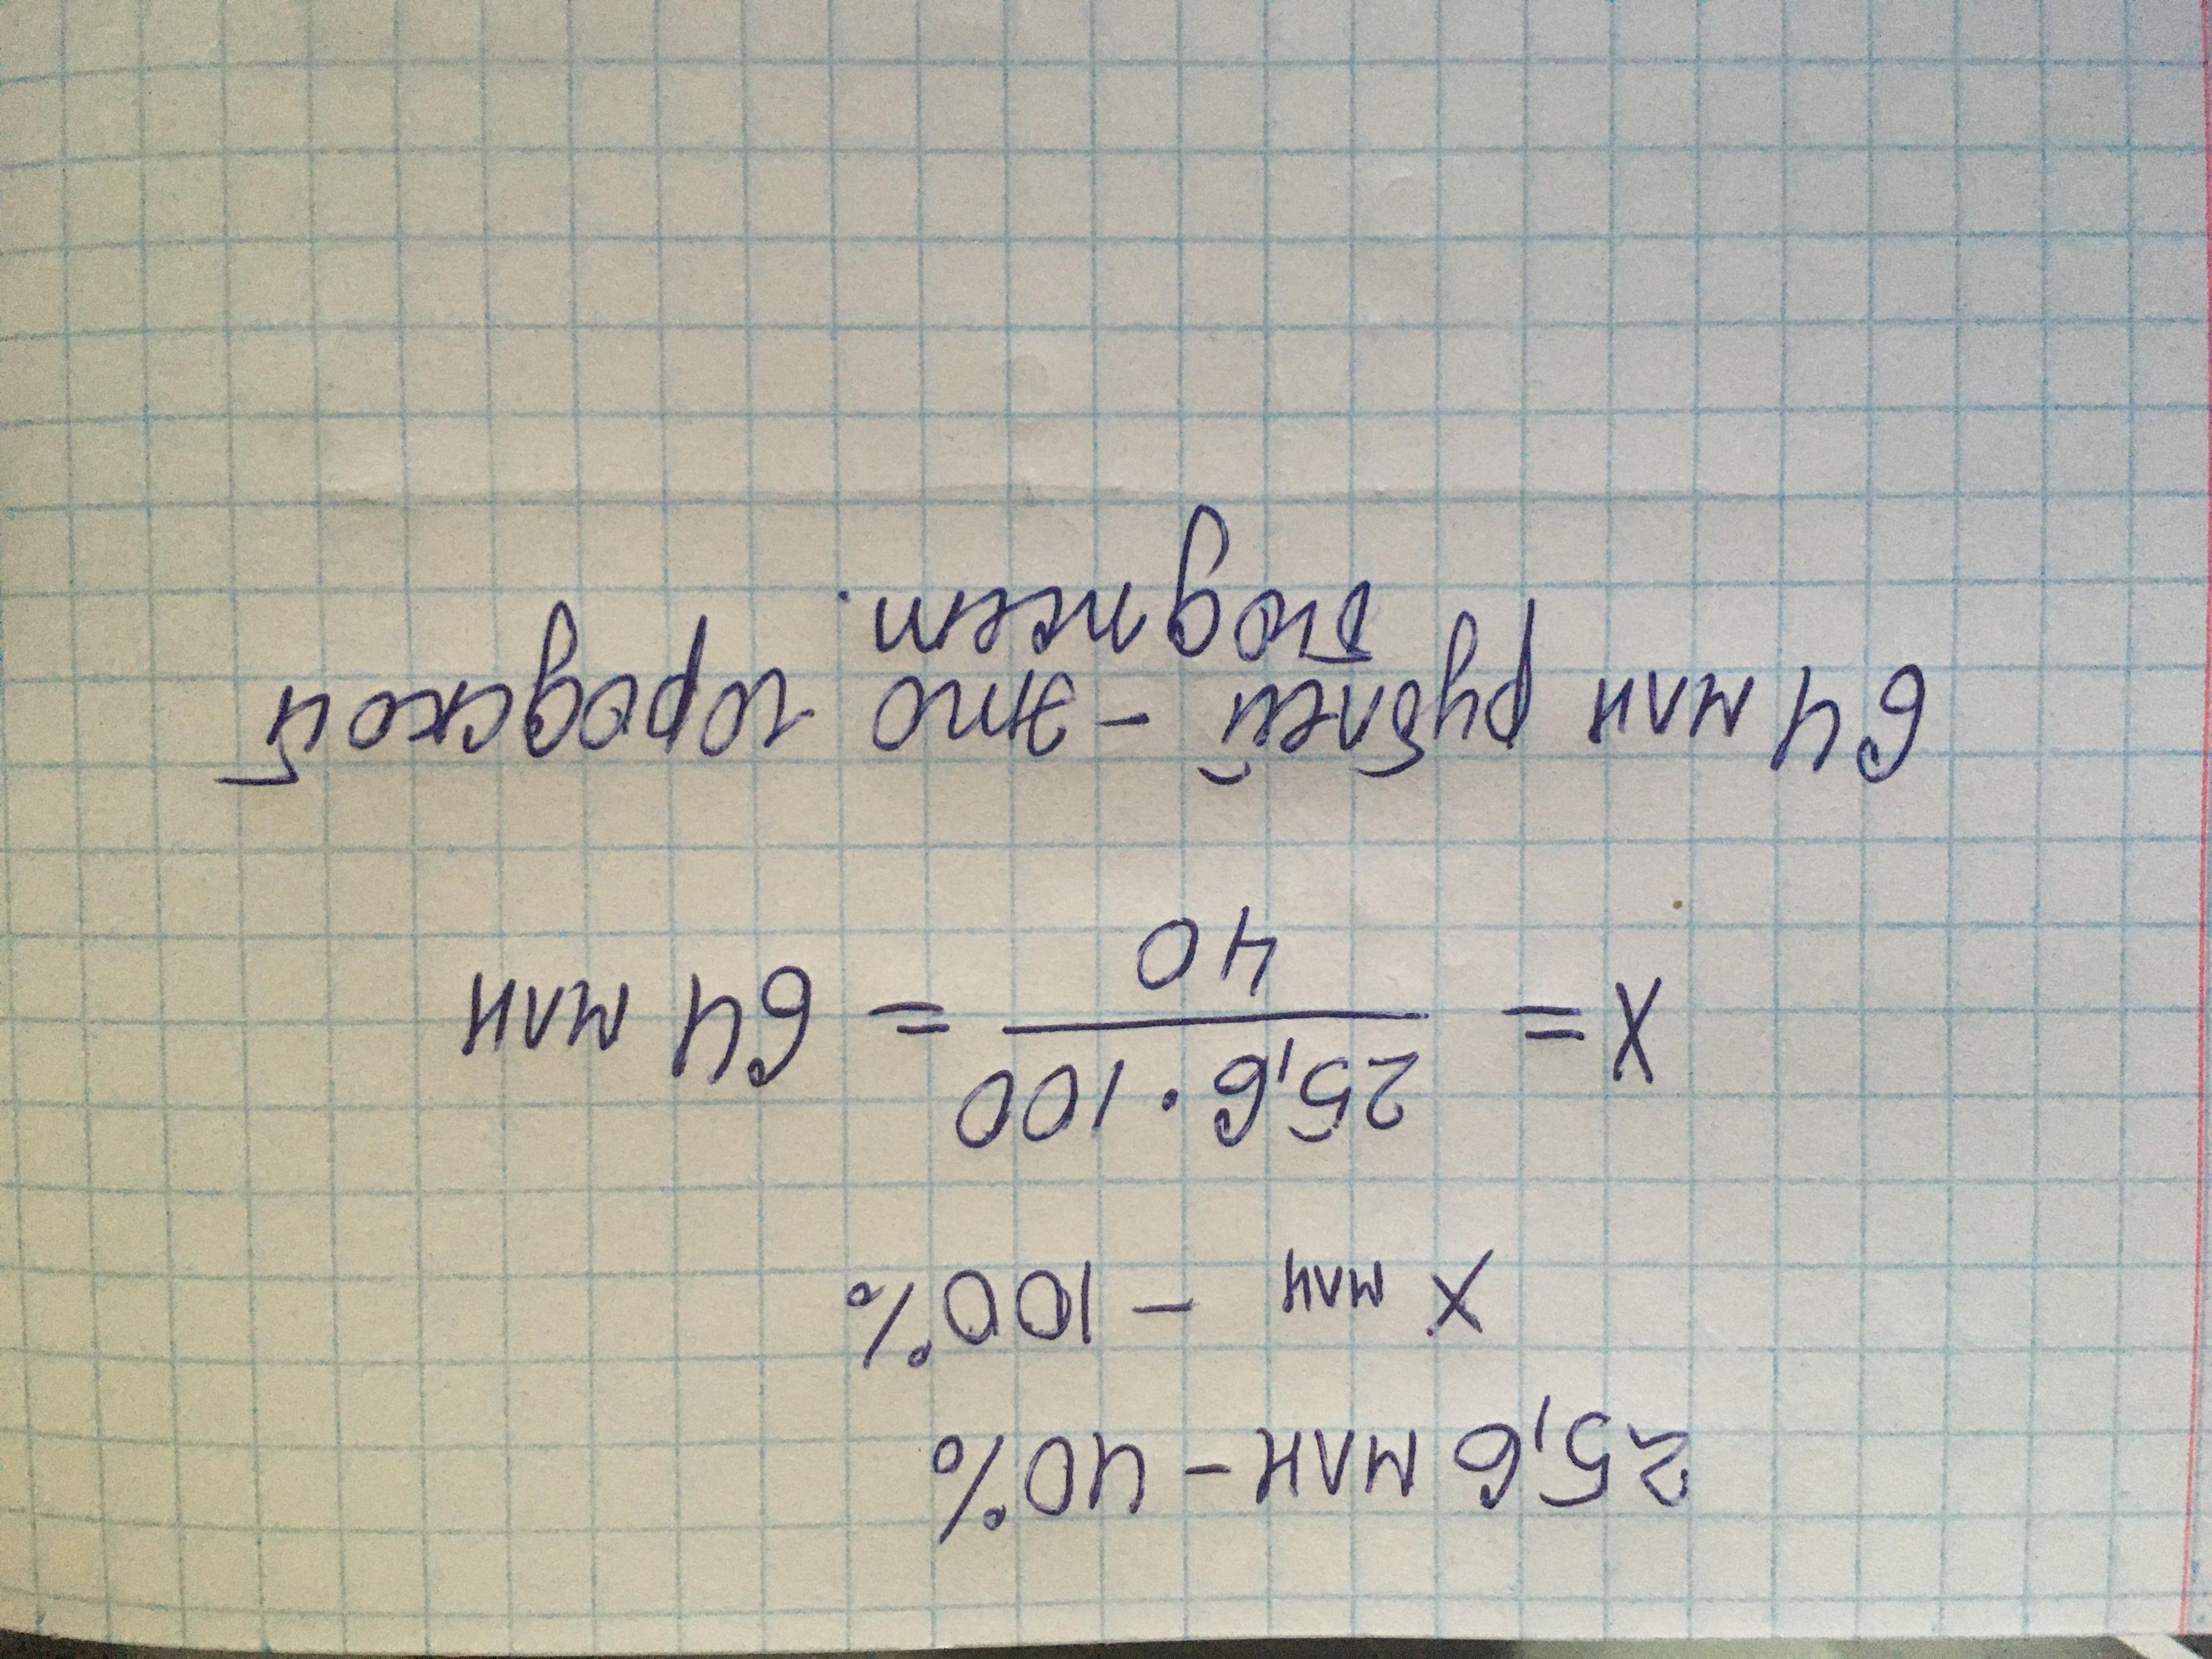 25,6 млн - 40%
X млн - 100%
X = 25,6 · 100 / 40 = 64 млн
64 млн рублей - это городской
бюджет.